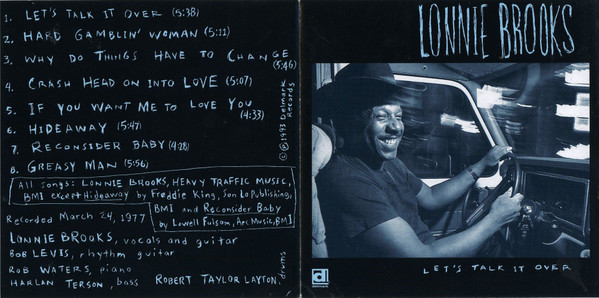 1. LET'S TALK IT OVER (5:38)
2. HARD GAMBLIN' WOMAN (5:11)
3. WHY DO THINGS HAVE TO CHANGE (5:46)
4. CRASH HEAD ON INTO LOVE (5:07)
5. IF YOU WANT ME TO LOVE YOU (4:33)
6. HIDEAWAY (5:47)
7. RECONSIDER BABY (4:28)
8. GREASY MAN (5:56)
All songs: LONNIE BROOKS, HEAVY TRAFFIC MUSIC,
BMI except Hideaway by Freddie King, Son Lo Publishing,
BMI and Reconsider Baby
by Lowell Fulsom, Arc Music, BMI
Recorded March 24, 1977
LONNIE BROOKS, vocals and guitar
BOB LEVIS, rhythm guitar
ROB WATERS, piano
HARLAN TERSON, bass
ROBERT TAYLOR LAYTON, drums
© ℗ 1993 Delmark
Records
LONNIE BROOKS
LET'S TALK IT OVER
d